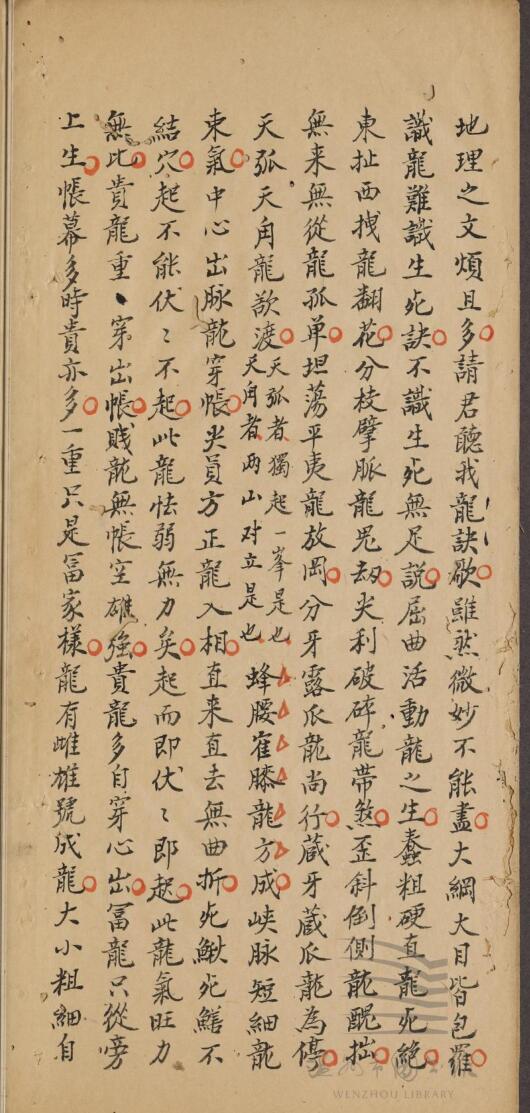 地理之文煩且多請君聽我龍訣歌雖然微妙不能盡大綱大目皆包羅
識龍難識生死訣不識生死無足説屈曲活動龍之生蠢粗硬直龍死絕
東扯西拽龍翻花分枝擘脈龍鬼刼尖利破碎龍帶煞歪斜倒側龍醜拙
無来無從龍孤单坦蕩平夷龍放岡分牙露爪龍尚行藏牙藏爪龍為停
天弧天角龍欲渡
天弧者獨起一峯是也
天角者两山对立是也
蜂腰隺膝龍方成峡脉短細龍
束氣中心出脉龍穿帳尖員方正龍入相直来直去無曲折死鰍死鱔不
結穴起不能伏〻不起此龍怯弱無力矣起而即伏〻即起此龍氣旺力
無比貴龍重〻穿出帳賤龍無帳空雄強貴龍多自穿心出冨龍只從旁
上生帳幕多時貴亦多一重只是冨家樣龍有雌雄號成龍大小粗細自
WENZHOU LIBRARY